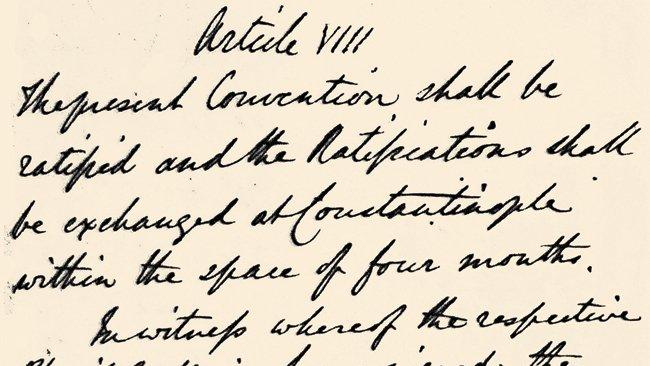 Article VIII
The present Convention shall be
ratified and the Ratifications shall
be exchanged at Constantinople
within the space of four months.
In witness whereof the respective
the